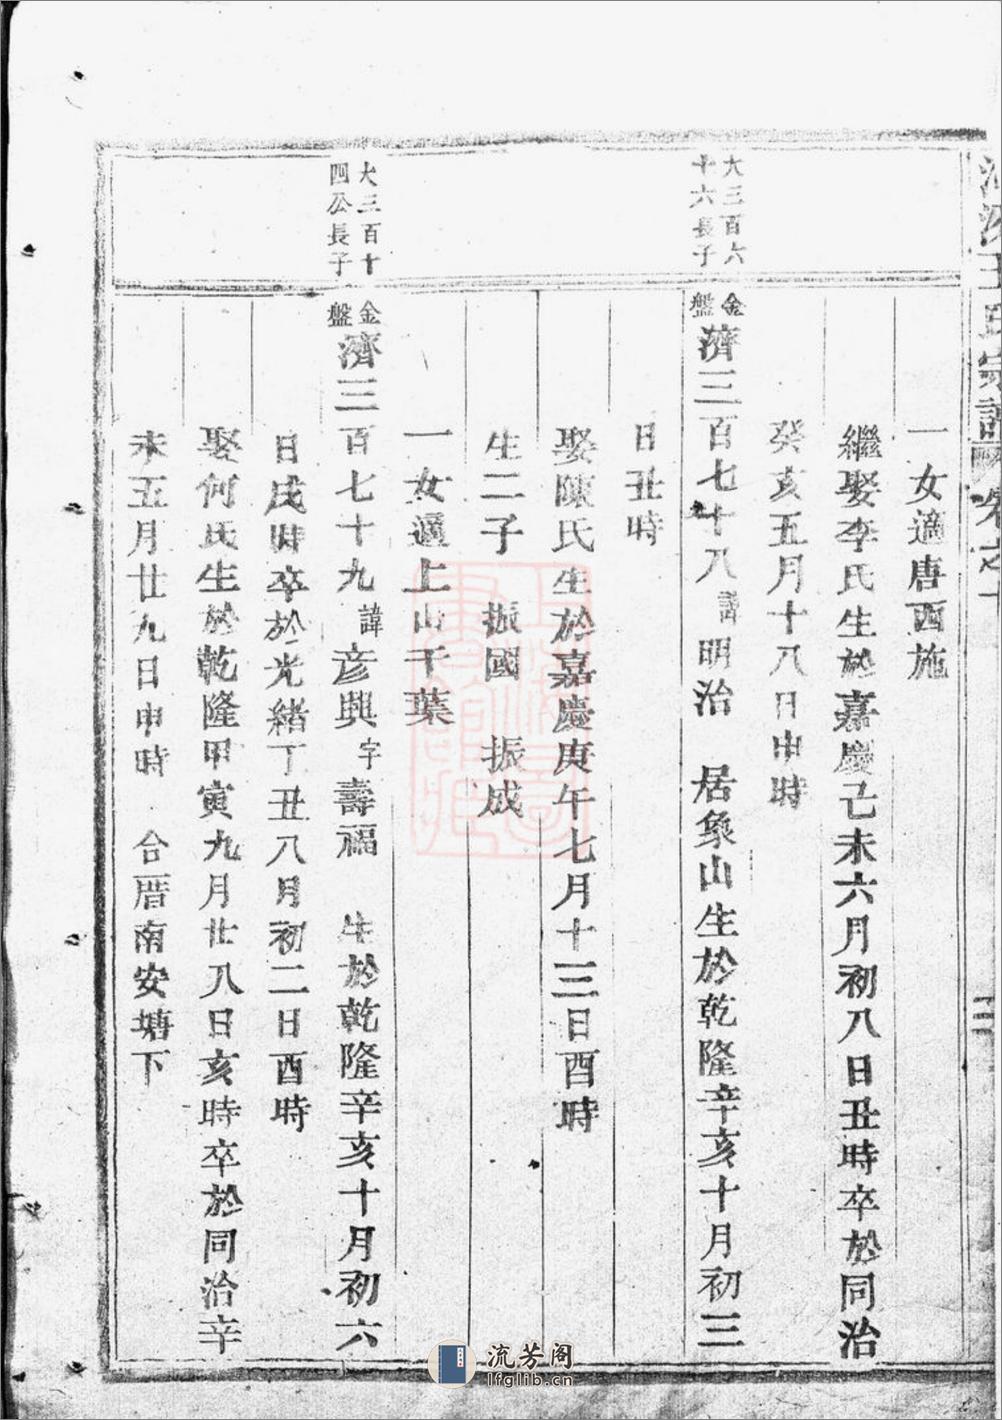 王氏宗譜 卷之十
一女適唐西施
繼娶李氏生於嘉慶己未六月初八日丑時卒於同治
癸亥五月十八日申時
大三百六十六長子
金盤 濟三百七十八 諱明治 居象山生於乾隆辛亥十月初三
日丑時
娶陳氏生於嘉慶庚午七月十三日酉時
生二子 振國 振成
一女適上山干葉
大三百十四公長子
金盤 濟三百七十九 諱彦興 字壽福 生於乾隆辛亥十月初六
日戌時卒於光緒丁丑八月初二日酉時
娶何氏生於乾隆甲寅九月廿八日亥時卒於同治辛
未五月廿九日申時 合厝南安塘下
流芳阁
lfglib.cn